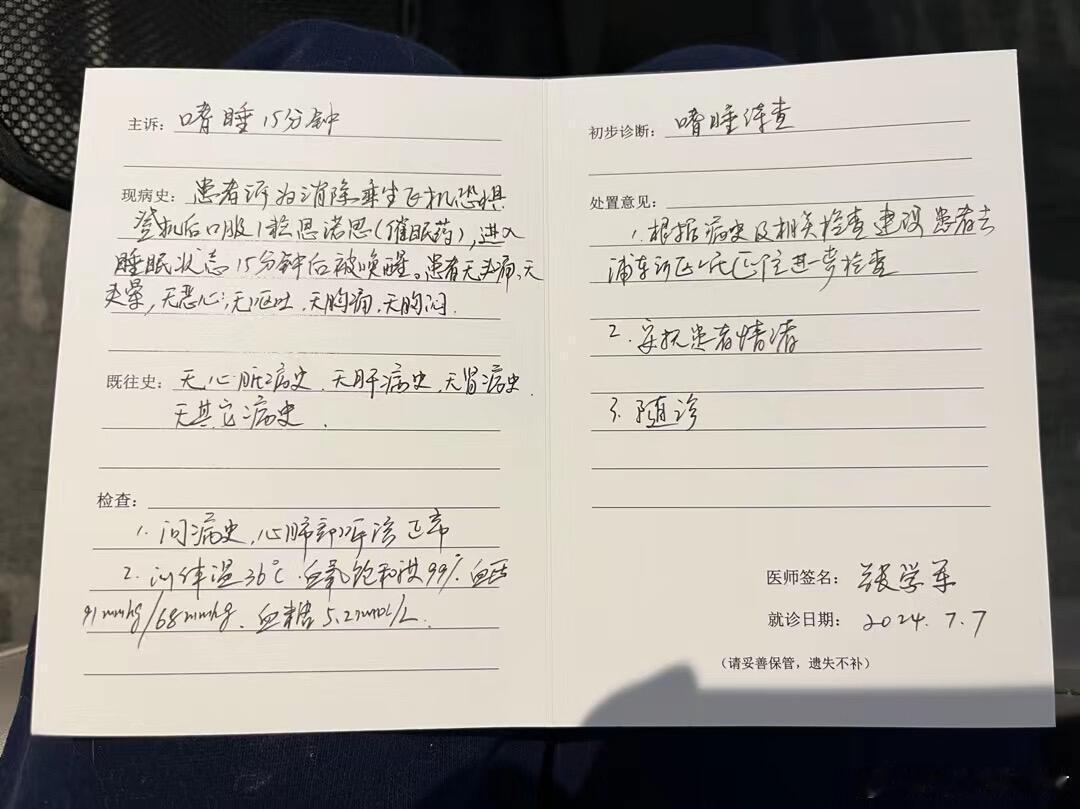 主诉: 嗜睡15分钟
现病史: 患者诉为消除乘坐飞机恐惧
登机后口服1粒思诺思(催眠药),进入
睡眠状态15分钟后被唤醒。患者无头痛、无
头晕,无恶心、无呕吐、无胸痛、无胸闷.
既往史: 无心脏病史、无肝病史、无肾病史、
无其它病史.
检查:
1. 问病史,心肺部听诊正常
2. 测体温36℃.血氧饱和度99%.血压
91mmhg/68mmhg、血糖5.2mmol/L.
初步诊断: 嗜睡待查
处置意见:
1. 根据病史及相关检查建议患者去
浦东新区人民医院进一步检查
2. 安抚患者情绪
3. 随诊
医师签名: 张学军
就诊日期: 2024.7.7
(请妥善保管,遗失不补)